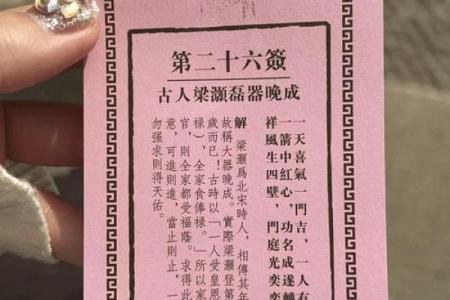 第二十六簽
古人梁灝磊器晚成
一天喜氣一門吉，一人有
一箭中紅心，功名成遂轉
祥風生四壁，門庭光奕奕
解 梁灝爲北宋時人，相傳其年
故稱大器晚成。實際梁灝登第
歲而已！古時以「一人受皇恩
祿），全家食俸祿。」所以家
官，則全都受福蔭。求得此
意，可進則進，當止則止，一
勿强求則得天佑。